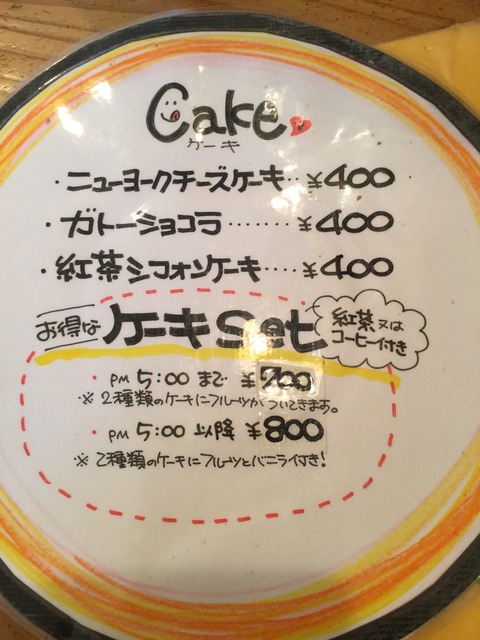 Cake
ケーキ
・ニューヨークチーズケーキ‥¥400
・ガトーショコラ‥‥‥‥¥400
・紅茶シフォンケーキ‥‥¥400
お得な ケーキ Set 紅茶又は
コーヒー付き
・PM 5:00 まで ¥700
※ 2種類のケーキにフルーツがついてきます。
・PM 5:00 以降 ¥800
※ 2種類のケーキにフルーツとバニラ付き!